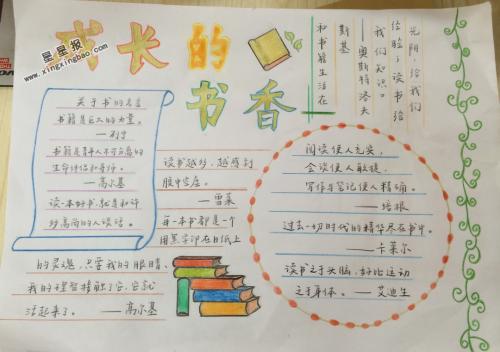 星星报
www.xingxingbao.com
成长的
书香
光阴，给我们
经验；读书给
我们知识。
——奥斯特洛夫
斯基
和书籍生活在
关于书的名言
书籍是巨大的力量。
——列宁
书籍是青年人不可分离的
生命伴侣和导师。
——高尔基
读一本好书，就是和许
多高尚的人谈话。
读书越多，越感到
腹中空虚。
——雪莱
每一本书都是一个
用黑字印在白纸上
的灵魂，只要我的眼睛、
我的理智接触了它，它就
活起来了。——高尔基
阅读使人充实，
会谈使人敏捷，
写作与笔记使人精确。
——培根
过去一切时代的精华尽在书中。
——卡莱尔
读书之于头脑，好比运动
之于身体。——艾迪生